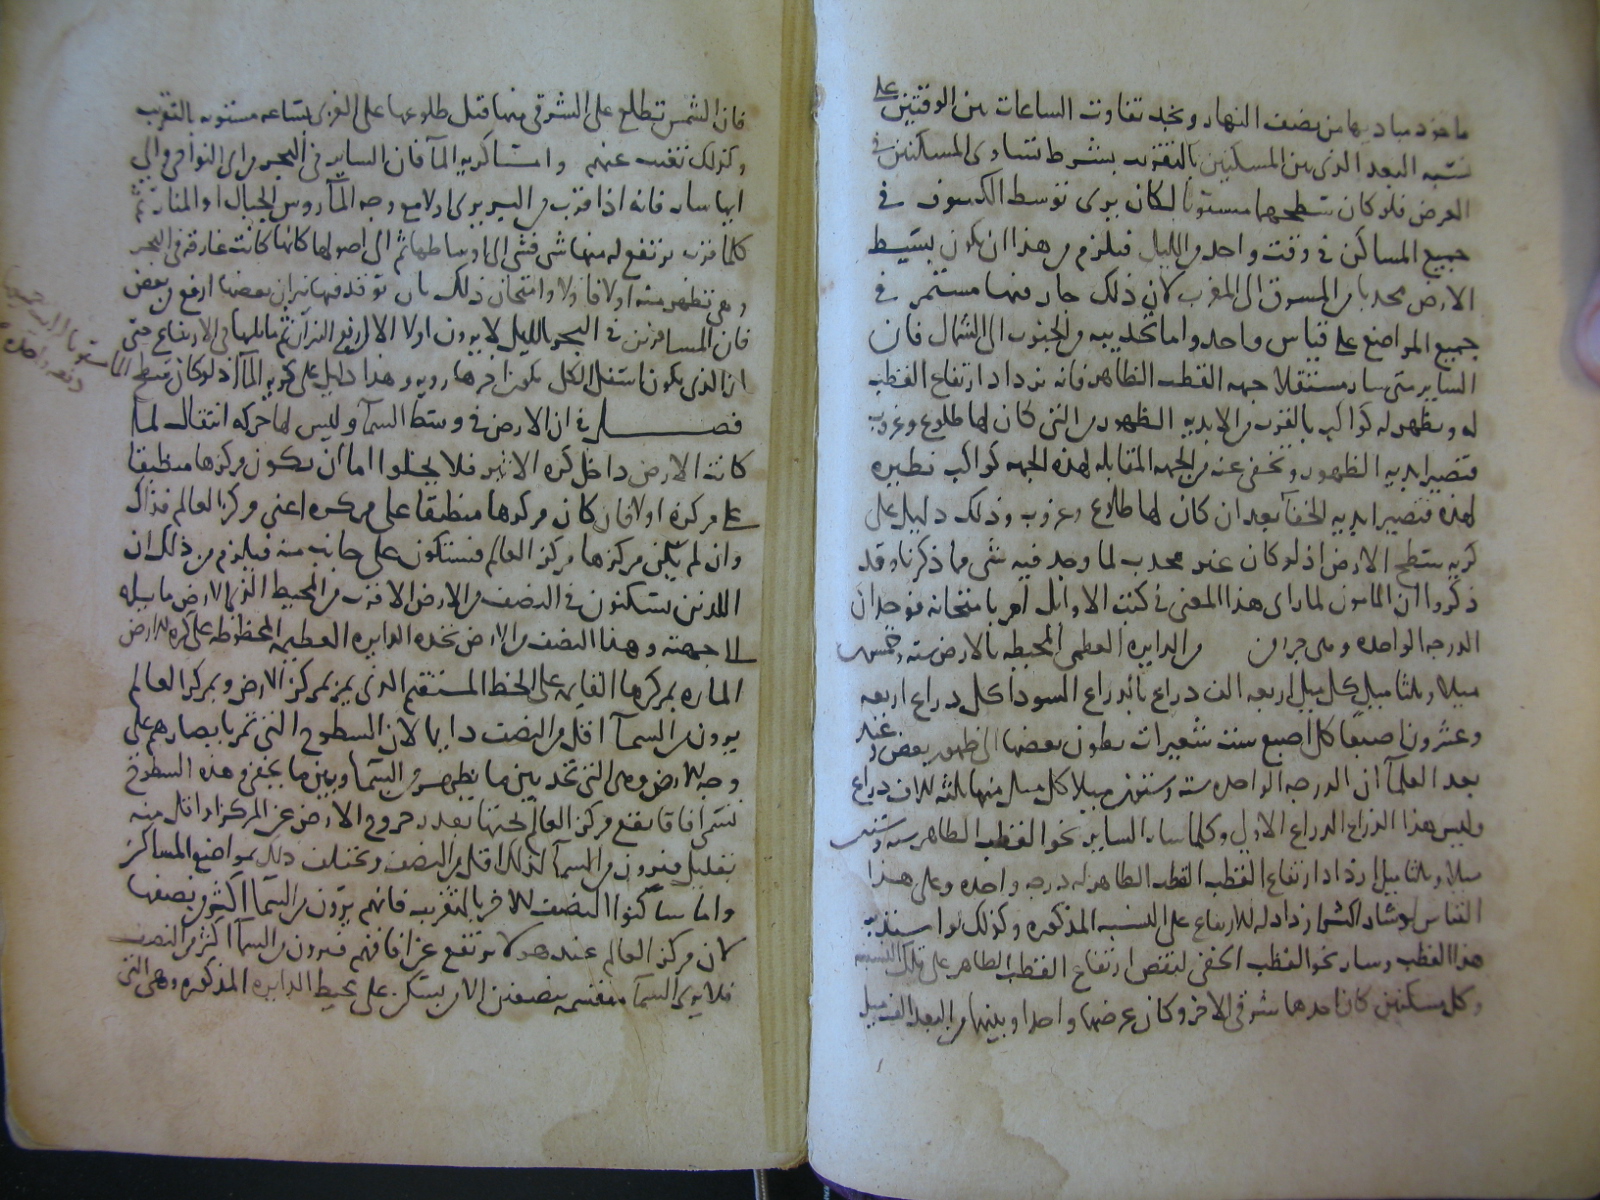 ماخوذ مباديها من نصف النهار ونجد تفاوت الساعات بين الوقتين على
نسبة البعد الذى بين المسكنين بالتقريب بشرط تساوى المسكنين فى
العرض فلو كان سطحها مستويا لكان يرى توسط الكسوف فى
جميع المساكن فى وقت واحد من الليل فيلزم من هذا ان يكون بسيط
الارض محدبا من المشرق الى المغرب لان ذلك جار فيها مستمر فى
جميع المواضع على قياس واحد واما تحديبه من الجنوب الى الشمال فان
الساير متى سار مستقبلا جهه القطب الظاهر فانه يزداد ارتفاع القطب
له ويظهر له كواكب بالقرب من الابديه الظهور من التى كان لها طلوع وغروب
فتصير ابديه الظهور وتخفى عنه من الجهه المقابله لهذه الجهه كواكب نظيره
لهذه فتصير ابديه الخفا بعد ان كان لها طلوع وغروب وذلك دليل على
كريه سطح الارض اذ لو كان غير محدب لما وجد فيه شى مما ذكرنا وقد
ذكروا ان المامون لما راى هذا المعنى فى كتب الاوايل امر بامتحانه فوجد ان
الدرجه الواحده وهى جزء من من الدايره العظمى المحيطه بالارض سته وخمسين
ميلا وثلثا ميل كل ميل اربعه الف دراع بالدراع السودا كل دراع اربعه
وعشرون اصبعا كل اصبع ست شعيرات بطون بعضها الى ظهور بعض وعند
بعد العلما ان الدرجه الواحده سته وستون ميلا كل ميل منها ثلثه الاف دراع
وليس هذا الدراع الدراع الاول وكلما سار الساير نحو القطب الظاهر سته وستين
ميلا وثلثا ميل ازداد ارتفاع القطب القطب الظاهر له درجه واحده وعلى هذا
القياس لو سار اكثر ازداد له الارتفاع على النسبه المذكوره وكذلك لو استدبر
هذا القطب وسار نحو القطب الخفى لنقص ارتفاع القطب الظاهر على تلك النسبه
وكل مسكنين كان احدها شرقى الاخر وكان عرضها واحدا وبينها من البعد الف ميل
فان الشمس تطلع على الشرقى منها قبل طلوعها على الغربى بساعه مستويه بالتقريب
وكذلك تغيب عنهم واما كريه الما فان الساير فى البحر من اى النواحى والى
ايها سار فانه اذا قرب من البر يرى اولا مع وجه الما روس الجبال او المنار ثم
كلما قرب يرتفع له منها شى فشى الى اوساطها ثم الى اصولها كانها كانت غارقة فى البحر
وهى تظهر منه اولا فاولا وامتحان ذلك بان توقد فيها نيران بعضها ارفع من بعض
فان المسافرين فى البحر بالليل لا يرون اولا الا ارفع النيران ثم ما يليها فى الارتفاع حتى
ان الذى يكون اسفل الكل يكون اخرها رويه وهذا دليل على كريه الما اذ لو كان سطح
الما مستويا لراى الجميع
دفعه واحده
فصل فى ان الارض فى وسط السما وليس لها حركه انتقال لما
كانت الارض داخل كره الاثير فلا يخلوا اما ان يكون مركزها منطبقا
على مركزه اولا فان كان مركزها منطبقا على مركزه اعنى مركز العالم فذاك
وان لم يكن مركزها مركز العالم فستكون على جانب منه فيلزم من ذلك ان
اللذين يسكنون فى النصف من الارض الاقرب من المحيط الذى الارض مايله
الى جهته وهذا النصف من الارض تحده الدايره العظيمه المخطوطه على كره الارض
الماره بمركزها القايمه على الخط المستقيم الذى يمر بمركز الارض وبمركز العالم
يرون من السما اقل من النصف دايما لان السطوح التى تمر بابصارهم على
وجه الارض وهى التى تحد بين ما يظهر من السما وبين ما يخفى وهذه السطوح
تسمى افاقا يقع مركز العالم تحتها بقدر خروج الارض عن المركز او اقل منه
بقليل فيرون من السما لذلك اقل من النصف ويختلف ذلك بمواضع المساكن
واما ساكنوا النصف الاخر بالتقريب فانهم يرون من السما اكثر من نصفها
لان مركز العالم عند هولا يرتفع عن افاقهم فيرون من السما اكثر من النصف
فلا يرى السما منقسمه بنصفين الا من يسكن على محيط الدايره المذكوره وهى التى